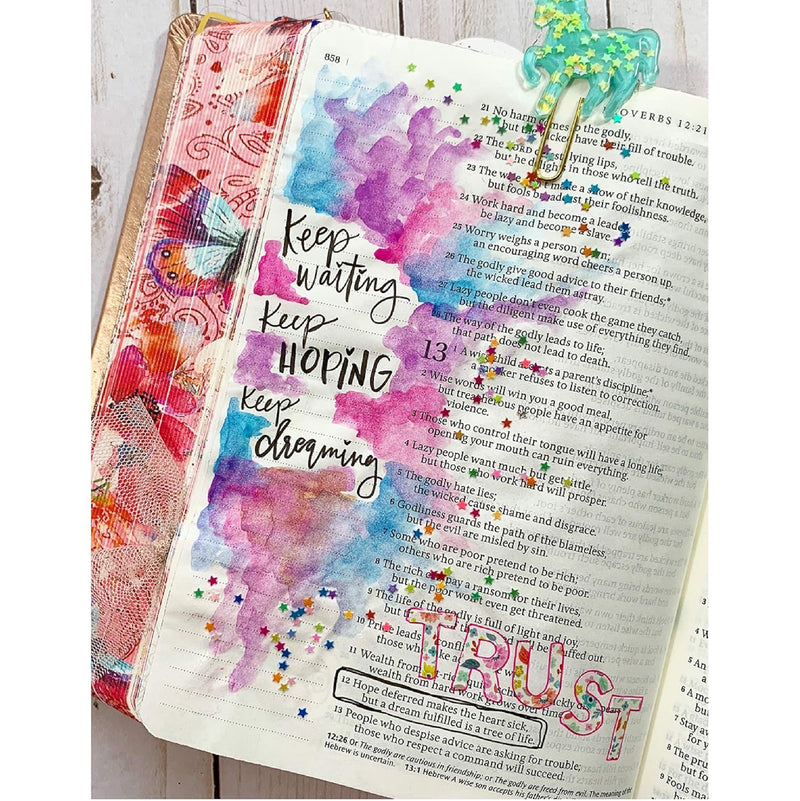 858
OVERBS 12:21
Keep
waiting
Keep
HOPING
Keep
dreaming
21 No harm comes to the godly,
but the wicked have their fill of trouble.
22 The LORD detests lying lips,
but he delights in those who tell the truth.
23 The wise don't make a show of their knowledge,
but fools broadcast their foolishness.
24 Work hard and become a leader;
be lazy and become a slave.
25 Worry weighs a person down;
an encouraging word cheers a person up.
26 The godly give good advice to their friends;*
the wicked lead them astray.
27 Lazy people don't even cook the game they catch,
but the diligent make use of everything they find.
28 The way of the godly leads to life;
that path does not lead to death.
13
1 A wise child accepts a parent's discipline;*
a mocker refuses to listen to correction.
2 Wise words will win you a good meal,
but treacherous people have an appetite for
violence.
3 Those who control their tongue will have a long life;
opening your mouth can ruin everything.
4 Lazy people want much but get little,
but those who work hard will prosper.
5 The godly hate lies;
the wicked cause shame and disgrace.
6 Godliness guards the path of the blameless,
but the evil are misled by sin.
7 Some who are poor pretend to be rich;
others who are rich pretend to be poor.
8 The rich can pay a ransom for their lives,
but the poor won't even get threatened.
9 The life of the godly is full of light and joy,
but the will be snuffed out.
10 Pride leads to conflict;
those who take
11 Wealth from get-rich-quick schemes quickly disappears;
wealth from hard work grows over time.
12 Hope deferred makes the heart sick,
but a dream fulfilled is a tree of life.
13 People who despise advice are asking for trouble;
those who respect a command will succeed.
TRUST
12:26 Or The godly are cautious in friendship; or The godly are freed from evil. The meaning of the
Hebrew is uncertain. 13:1 Hebrew A wise son accepts his father's